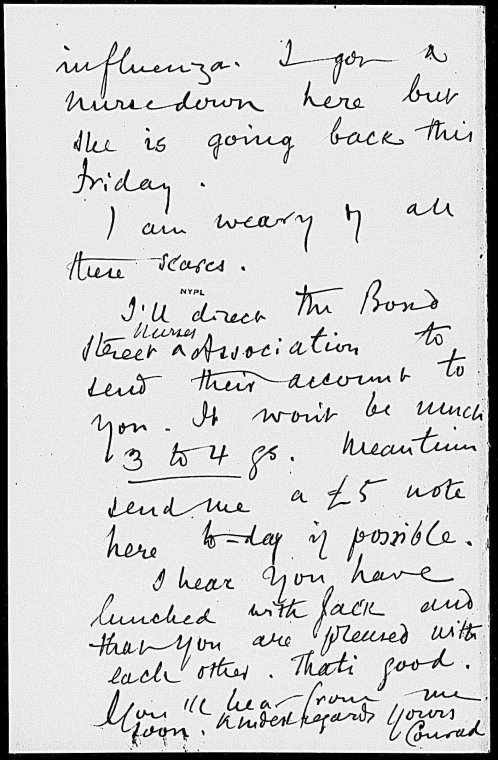 influenza. I got a
nurse down here but
she is going back this
Friday.
I am weary of all
these scares.
NYPL
I'll direct the Bond
Nurses
Street Association to
send their account to
you. It won't be much
3 to 4 gs. Meantime
send me a £5 note
here to-day if possible.
I hear you have
lunched with Jack and
that you are pleased with
each other. That's good.
You'll hear from me
soon. Kindest regards Yours
Conrad